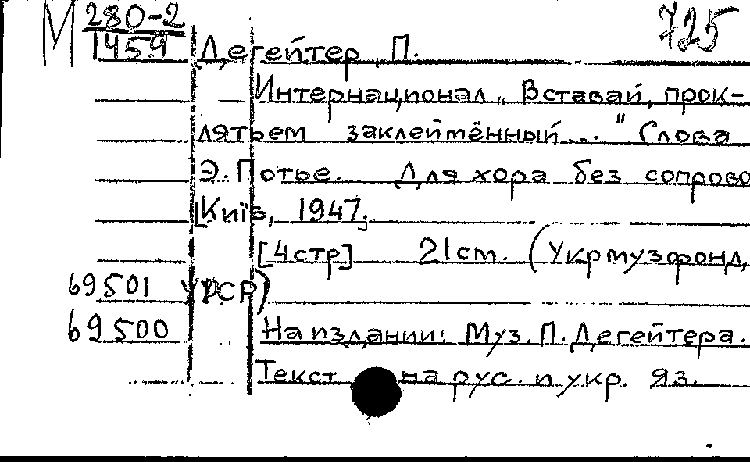 М 280-2
1459
725
Дегейтер, П.
Интернационал „Вставай, прок-
лятьем заклеймённый..." Слова
Э. Потье. Для хора без сопрово
[Київ, 1947.]
[4 стр] 21 cm. (Укрмузфонд,
69501 УРСР)
69500 На издании: Муз. П. Дегейтера.
Текст на рус. и укр. яз.